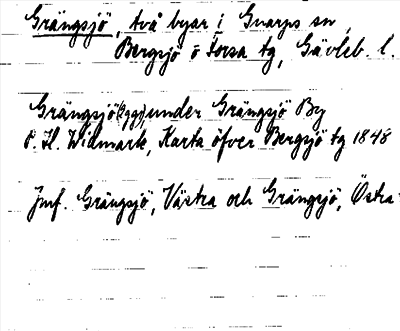 Grängsjö, två byar i Gnarps sn,
Bergsjö o Forsa tg, Gävleb. l.
Grängsjö (Bygd) under Grängsjö By
P. H. Widmark, Karta öfver Bergsjö tg 1848
Jmf. Grängsjö, Västra och Grängsjö, Östra